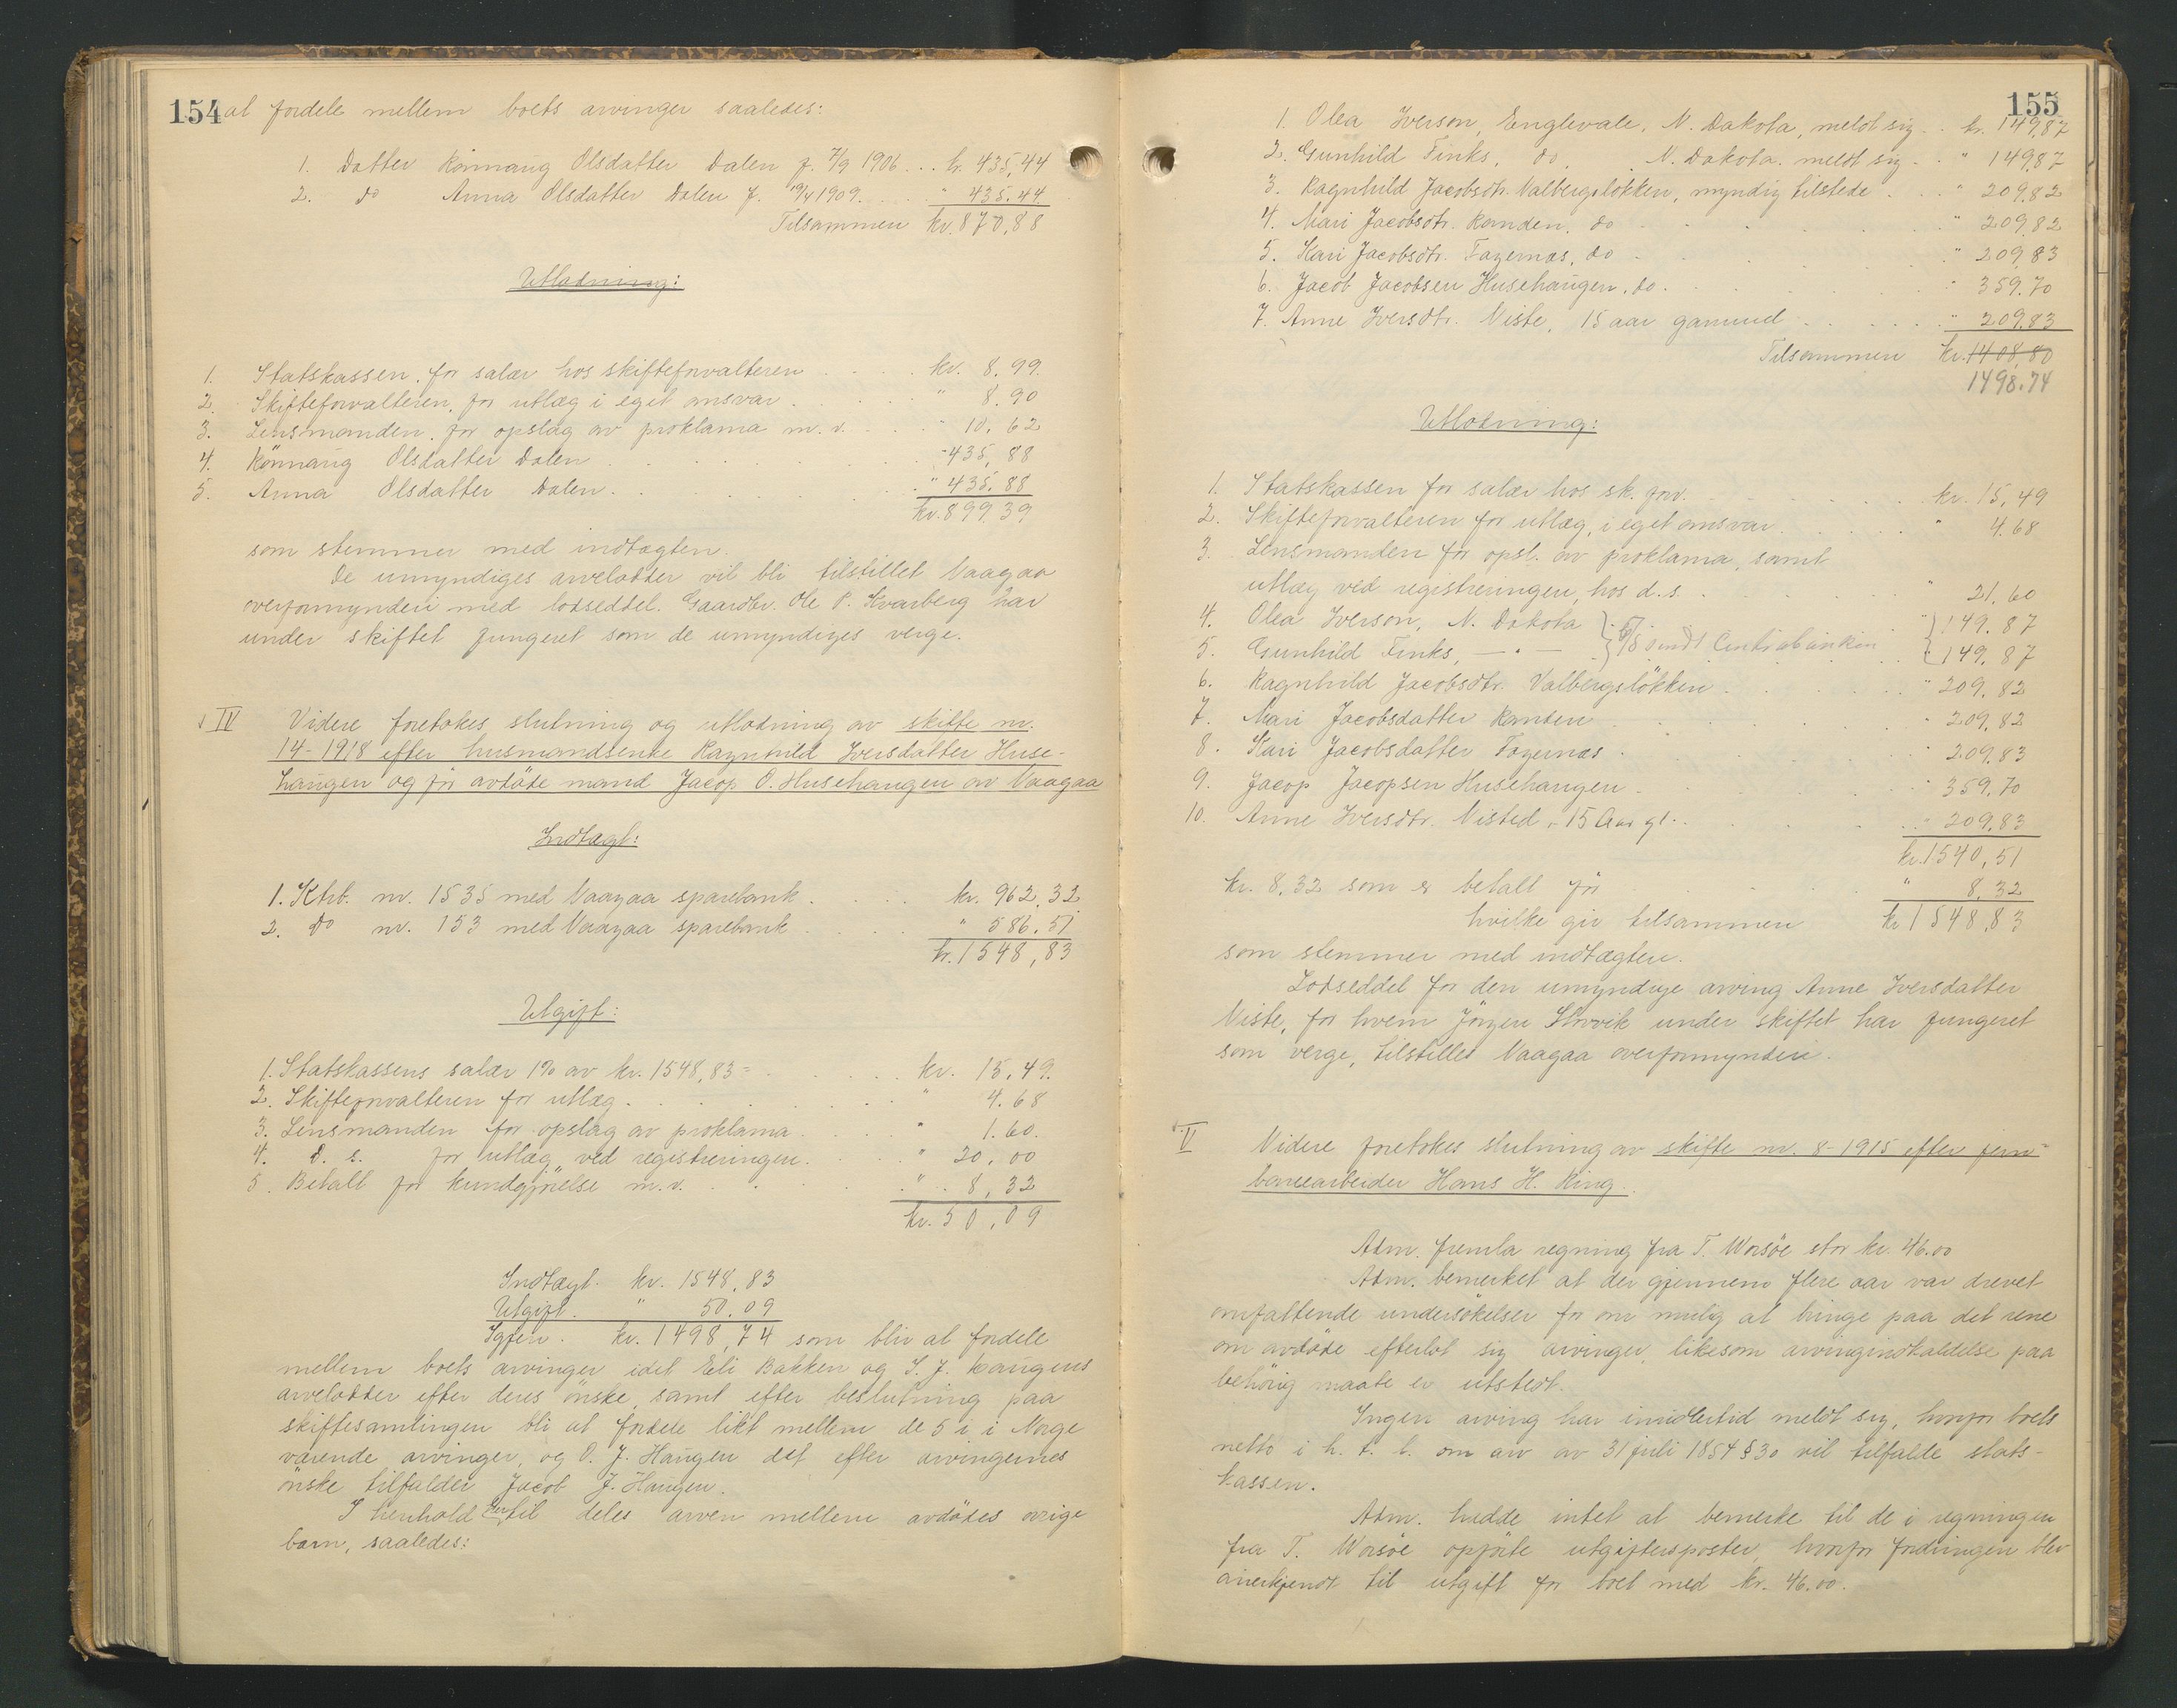 154 at fordele mellem boets arvinger saaledes:
1. Datter Rönnaug Olsdatter Dalen f. 7/9 1906 . . . kr. 435,44
2. do Anna Olsdatter Dalen f. 19/4 1909. . . . " 435.44
Tilsammen kr. 870,88
Utlodning:
1. Statskassen, for salær hos skifteforvalteren . . . . kr. 8,99
2. Skifteforvalteren, for utlæg i eget ansvar . . . . . " 8.90
3. Lensmanden, for opslag av proklama m.v. . . . . " 10,62
4. Rönnaug Olsdatter Dalen . . . . . . . " 435,88
5. Anna Olsdatter Dalen . . . . . . . " 435,88
kr. 899.39
som stemmer med indtægten.
De umyndiges arvelodder vil bli tilstillet Vaagaa
overformynderi med lodseddel. Gaardbr. Ole P. Kvarberg har
under skiftet fungeret som de umyndiges verge.
IV Videre foretokes slutning og utlodning av skifte nr.
14-1918 efter husmandsenke Ragnhild Iversdatter Huse-
haugen og før avdöde mand Jacop O. Husehaugen av Vaagaa
Indtægt:
1. Ktrb. nr. 1535 med Vaagaa sparebank . . . . kr. 962,32
2. do nr. 153 med Vaagaa sparebank . . . . " 586.51
kr. 1548,83
Utgift:
1. Statskassens salær 1% av kr. 1548,83 = . . . . kr. 15,49.
2. Skifteforvalteren for utlæg . . . . . . . " 4.68
3. Lensmanden for opslag av proklama . . . . " 1.60.
4. d. s. for utlæg ved registreringen . . . . " 20.00
5. Betalt for kundgjörelse m.v. . . . . . " 8,32
kr. 50,09
Indtægt. kr. 1548,83
Utgift. " 50.09
Igjen. kr. 1498,74 som blir at fordele
mellem boets arvinger idet Eli Bakken og I. J. Haugens
arvelodder efter deres önske, samt efter beslutning paa
skiftesamlingen bli at fordele likt mellem de 5 i i Norge
værende arvinger, og O. J. Haugen del efter arvingernes
önske tilfalder Jacob J. Haugen.
I henhold hertil deles arven mellem avdödes övrige
barn, saaledes:
155
1. Olea Iverson, Englevale, N. Dakota, meldt sig . . kr. 149,87
2. Gunhild Finks, do, N. Dakota. meldt sig . . " 149,87
3. Ragnhild Jacobsdtr. Valbergslökken, myndig tilstede . . . " 209,82
4. Mari Jacobsdtr. Randen, do . . . . . . . " 209,82
5. Kari Jacobsdtr. Fagernæs, do . . . . . . . " 209,83
6. Jacob Jacobsen Husehaugen, do . . . . . . . " 359.70
7. Anne Iversdtr. Viste, 15 aar gammel . . . . . . " 209,83
Tilsammen kr. 1408,80
1498.74
Utlodning:
1. Statskassen for salær hos sk. forv. . . . . . . kr. 15,49
2. Skifteforvalteren for utlæg, i eget ansvar . . . . . " 4.68
3. Lensmanden for opsl. av proklama, samt
utlæg ved registreringen, hos d.s. . . . . . . . " 21,60
4. Olea Iverson, N. Dakota . . . . " 149.87
5. Gunhild Finks, — " — sendt Centralbanken . . " 149.87
6. Ragnhild Jacobsdtr. Valbergslökken . . . . . . " 209,82
7. Mari Jacobsdatter Randen . . . . . . . " 209,82
8. Kari Jacobsdatter Fagernæs . . . . . . . " 209,83
9. Jacop Jacopsen Husehaugen . . . . . . . " 359.70
10. Anne Iversdtr. Visted, 15 Aar gl. . . . . . . " 209,83
kr. 1540,51
kr. 8.32 som er betalt för . . . . . " 8,32
hvilke gir tilsammen kr. 1548,83
som stemmer med indtægten.
Lodseddel for den umyndige arving Anne Iversdatter
Viste, for hvem Jörgen Storvik under skiftet har fungeret
som verge, tilstilles Vaagaa overformynderi.
V Videre foretokes slutning av skifte nr. 8-1915 efter jern-
banearbeider Hans H. Ring.
Adm. fremla regning fra T. Worsöe stor kr. 46.00
Adm. bemerket at der gjennem flere aar var drevet
omfattende undersökelser for om mulig at bringe paa det rene
om avdöde efterlot sig arvinger, likesom arvingindkaldelse paa
behörig maate er utstedt.
Ingen arving har imidlertid meldt sig, hvorfor boets
netto i h. t. l. om arv av 31 juli 1854 § 30 vil tilfalde stats-
kassen.
Adm. hadde intet at bemerke til de i regningen
fra T. Worsöe opförte utgiftersposter, hvorfor fordringen blev
anerkjendt til utgift for boet med kr. 46.00.